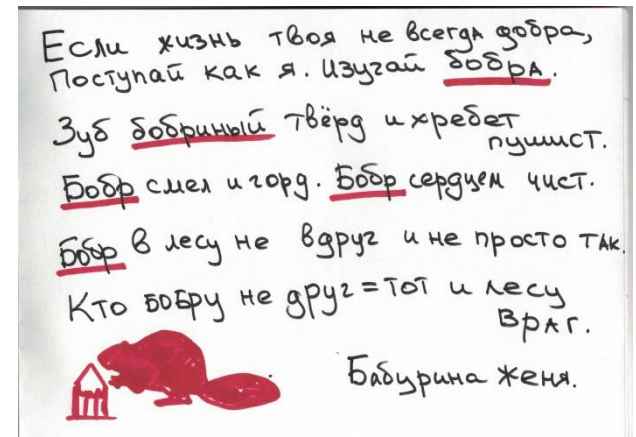 Если жизнь твоя не всегда добра,
Поступай как я. Изучай бобра.
Зуб бобриный твёрд и хребет
пушист.
Бобр смел и горд. Бобр сердцем чист.
Бобр в лесу не вдруг и не просто так.
Кто бобру не друг = тот и лесу
враг.
Бабурина Женя.